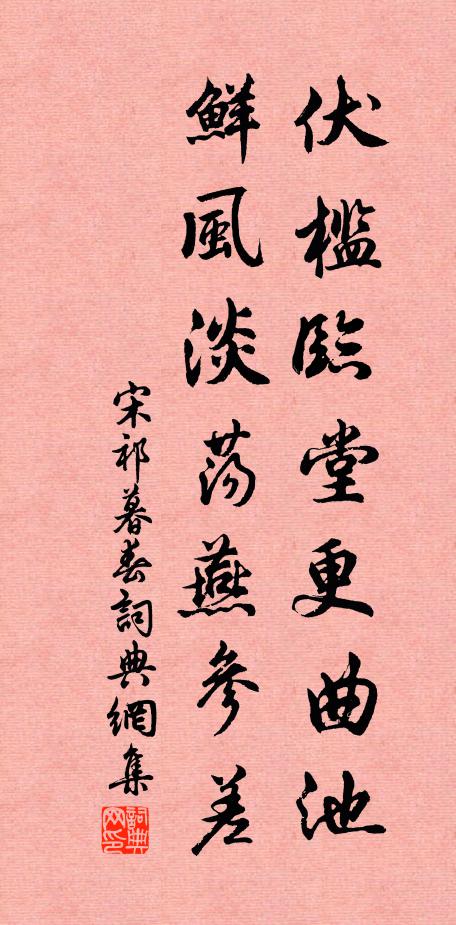 伏檻臨堂更曲池
鮮風淡荡燕參差
宋祁暮春詞典網集
詞典网印